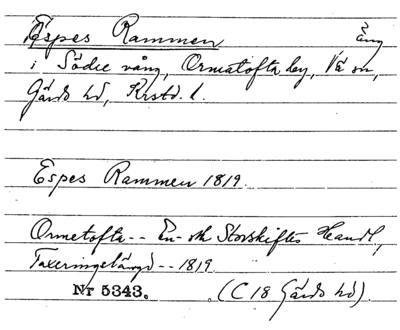 Espes Rammen Äng
i Södre vång, Ormatofta by, Vä sn,
Gärds hd, Krstd. l.
Espes Rammen 1819.
Ormetofta -- En- oth Storskiftes Handl,
Taxeringslängd -- 1819
Nr 5343. (C 18 Gärds hd).